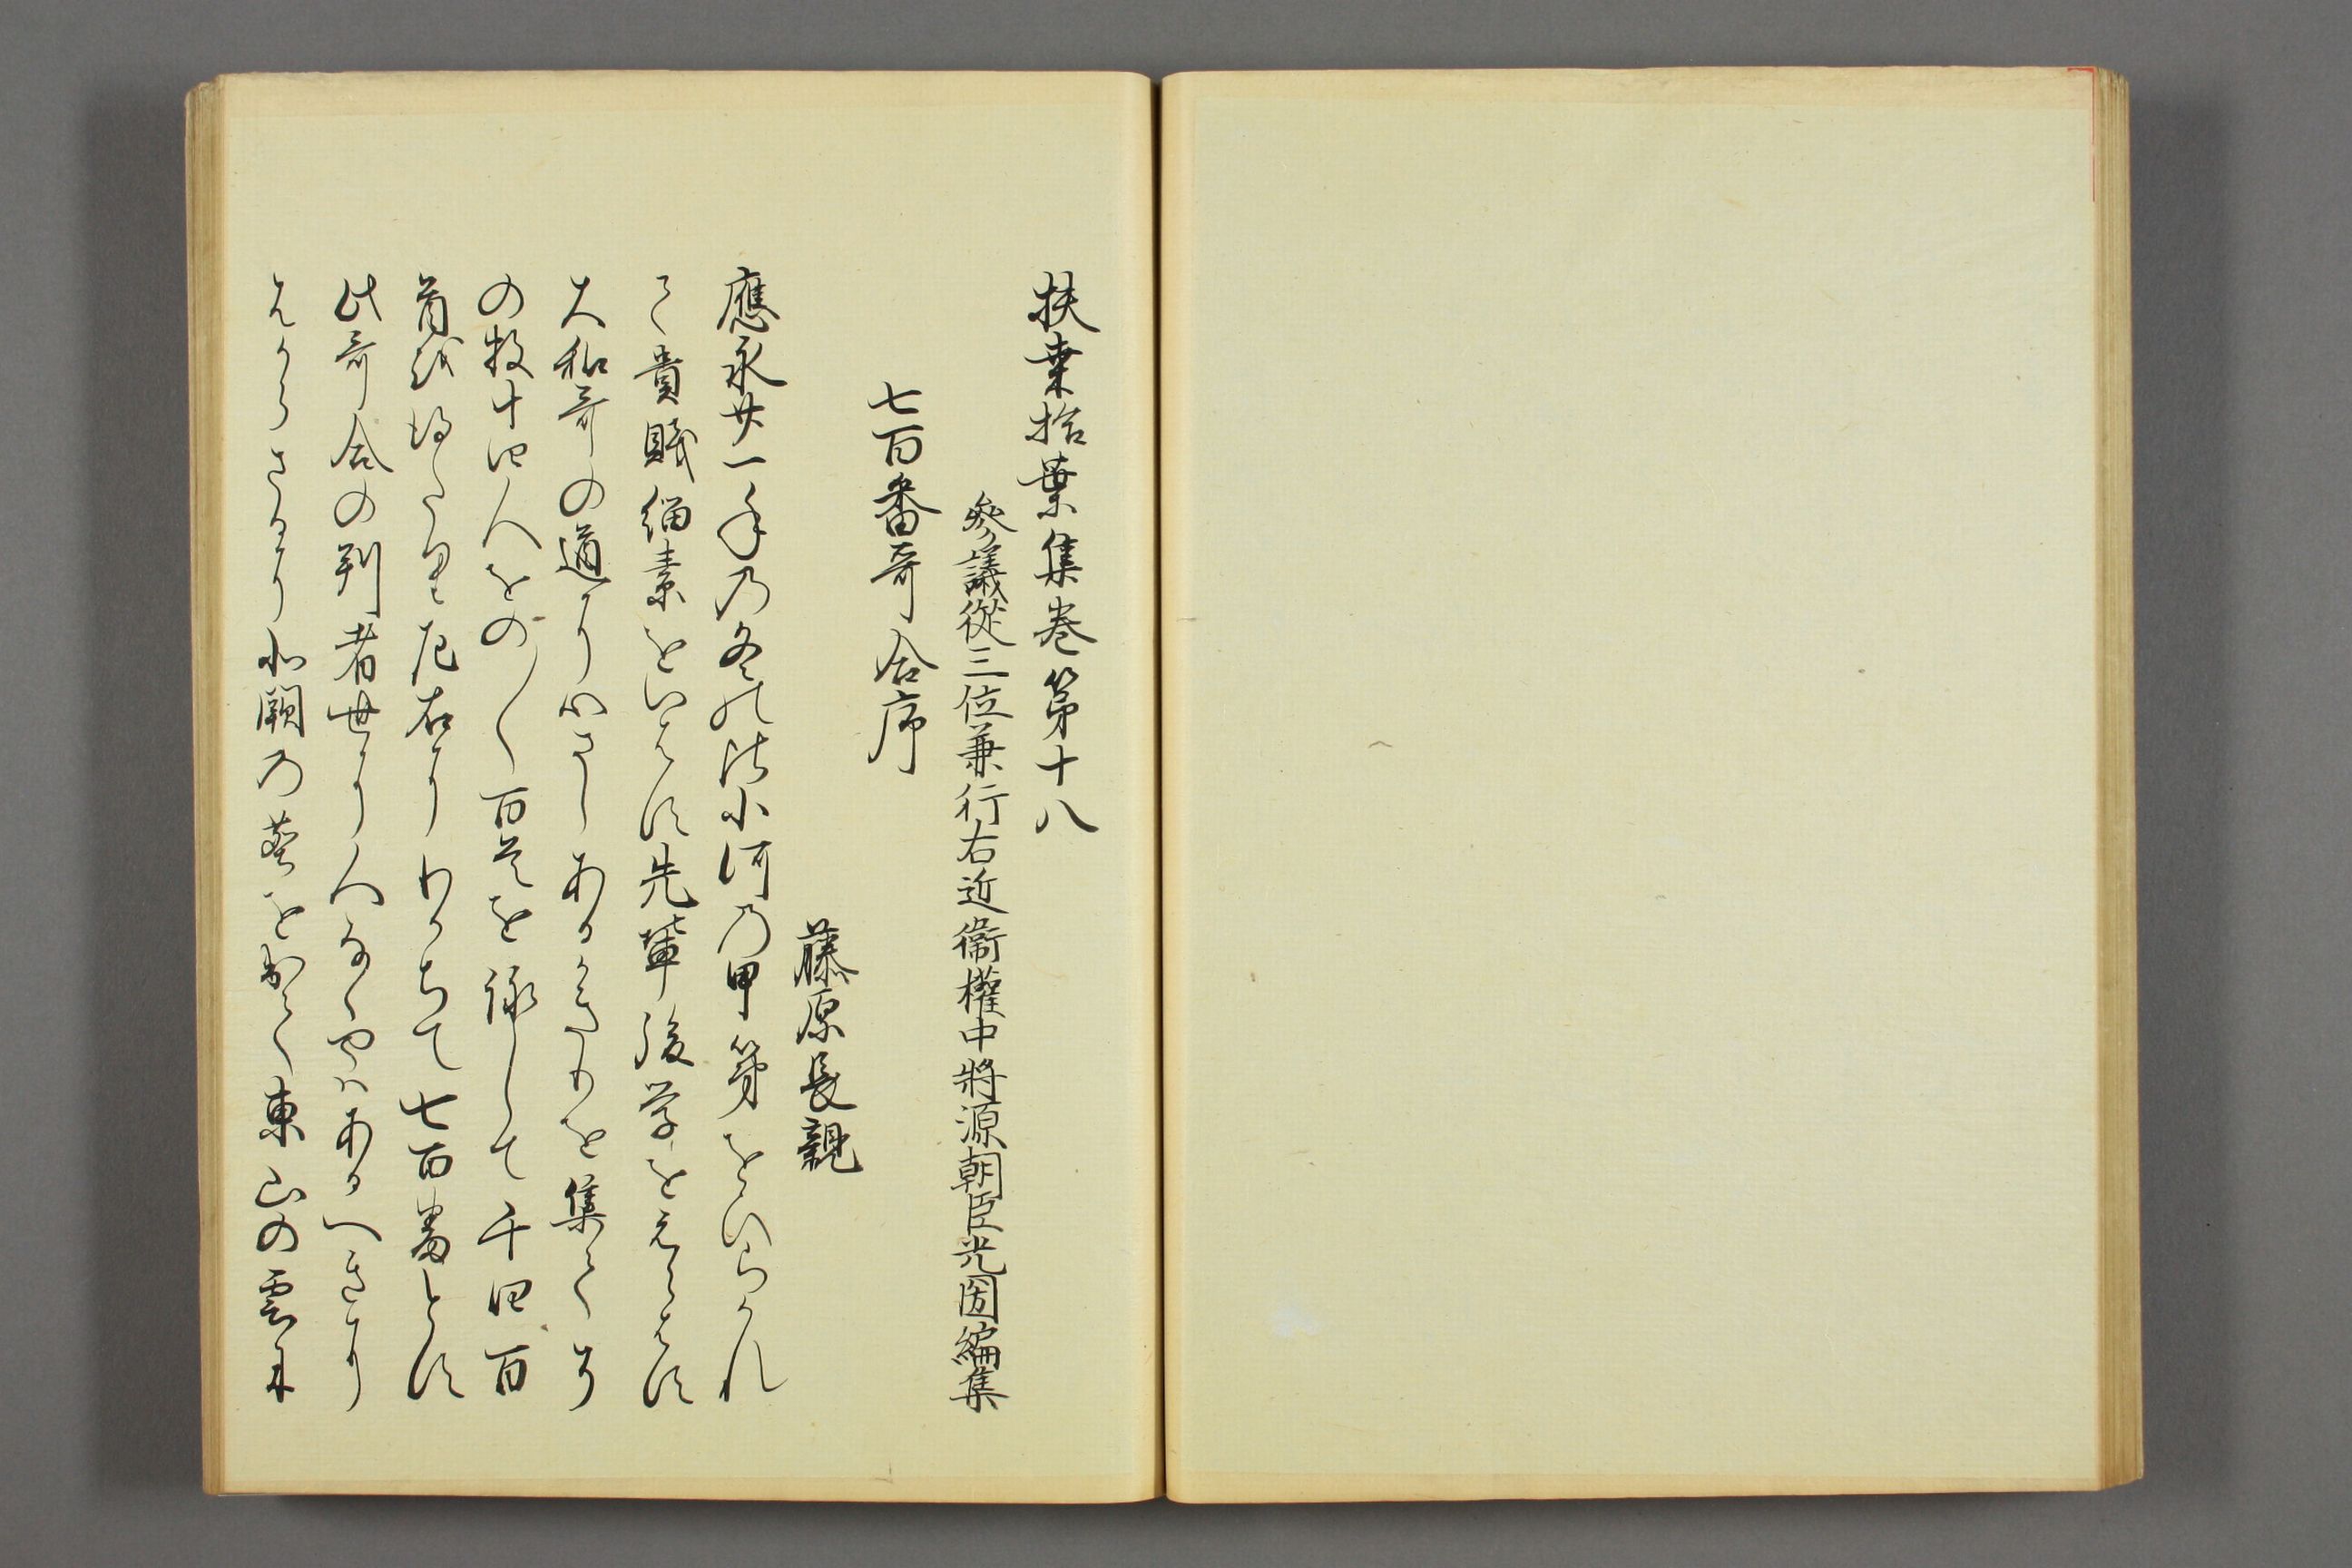 扶桒拾葉集巻第十八
參議從三位兼行右近衞權中將源朝臣光圀編集
七百番哥合序
藤原長親
應永廿一年乃冬の比小河乃甲第をひらかれ
て貴賤緇素をいはす先輩後学をえらはす
大和哥の道に心さしあるかきりを集てそ
の数十四人をの〱百首を詠して千四百
首を得たり左右にわかちて七百番とす
此哥合の判者世に人なくやはあるへきに
はからさるに小願乃葵を出て東山の雲に